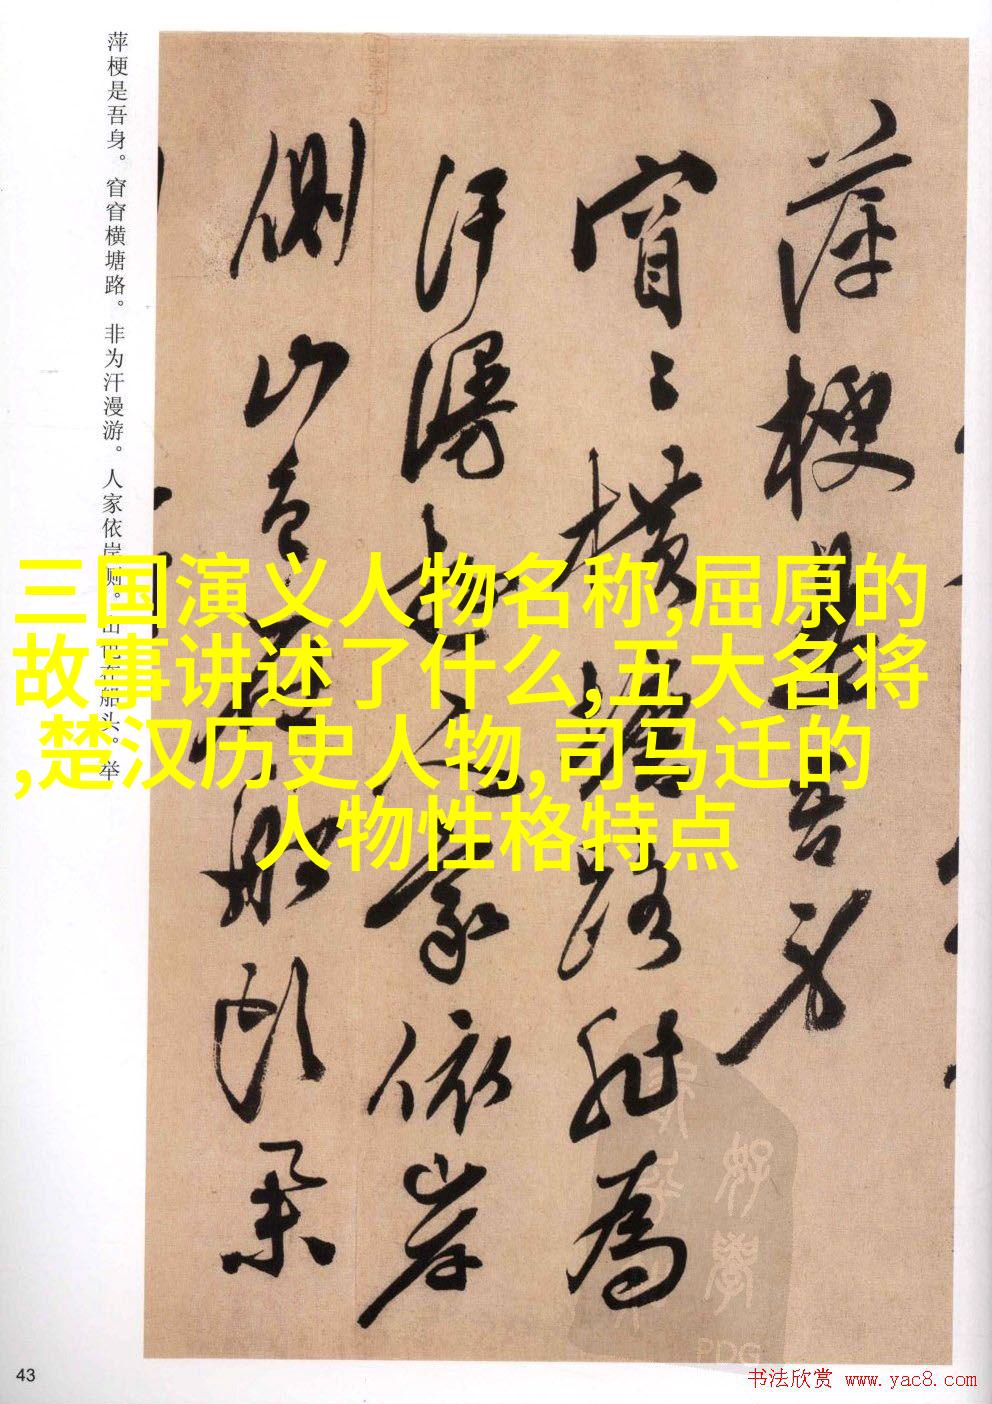 萍梗是吾身。窅窅横塘路。非为汗漫游。人家依岸侧。山色在船头。举
萍梗是吾身
窅窅横塘路非为
汗漫游人家依岸
侧山色在船头举
三国演义人物名称,屈原的
故事讲述了什么,五大名将
,楚汉历史人物,司马迁的
人物性格特点
43
PDG
书法欣赏 www.yac8.com